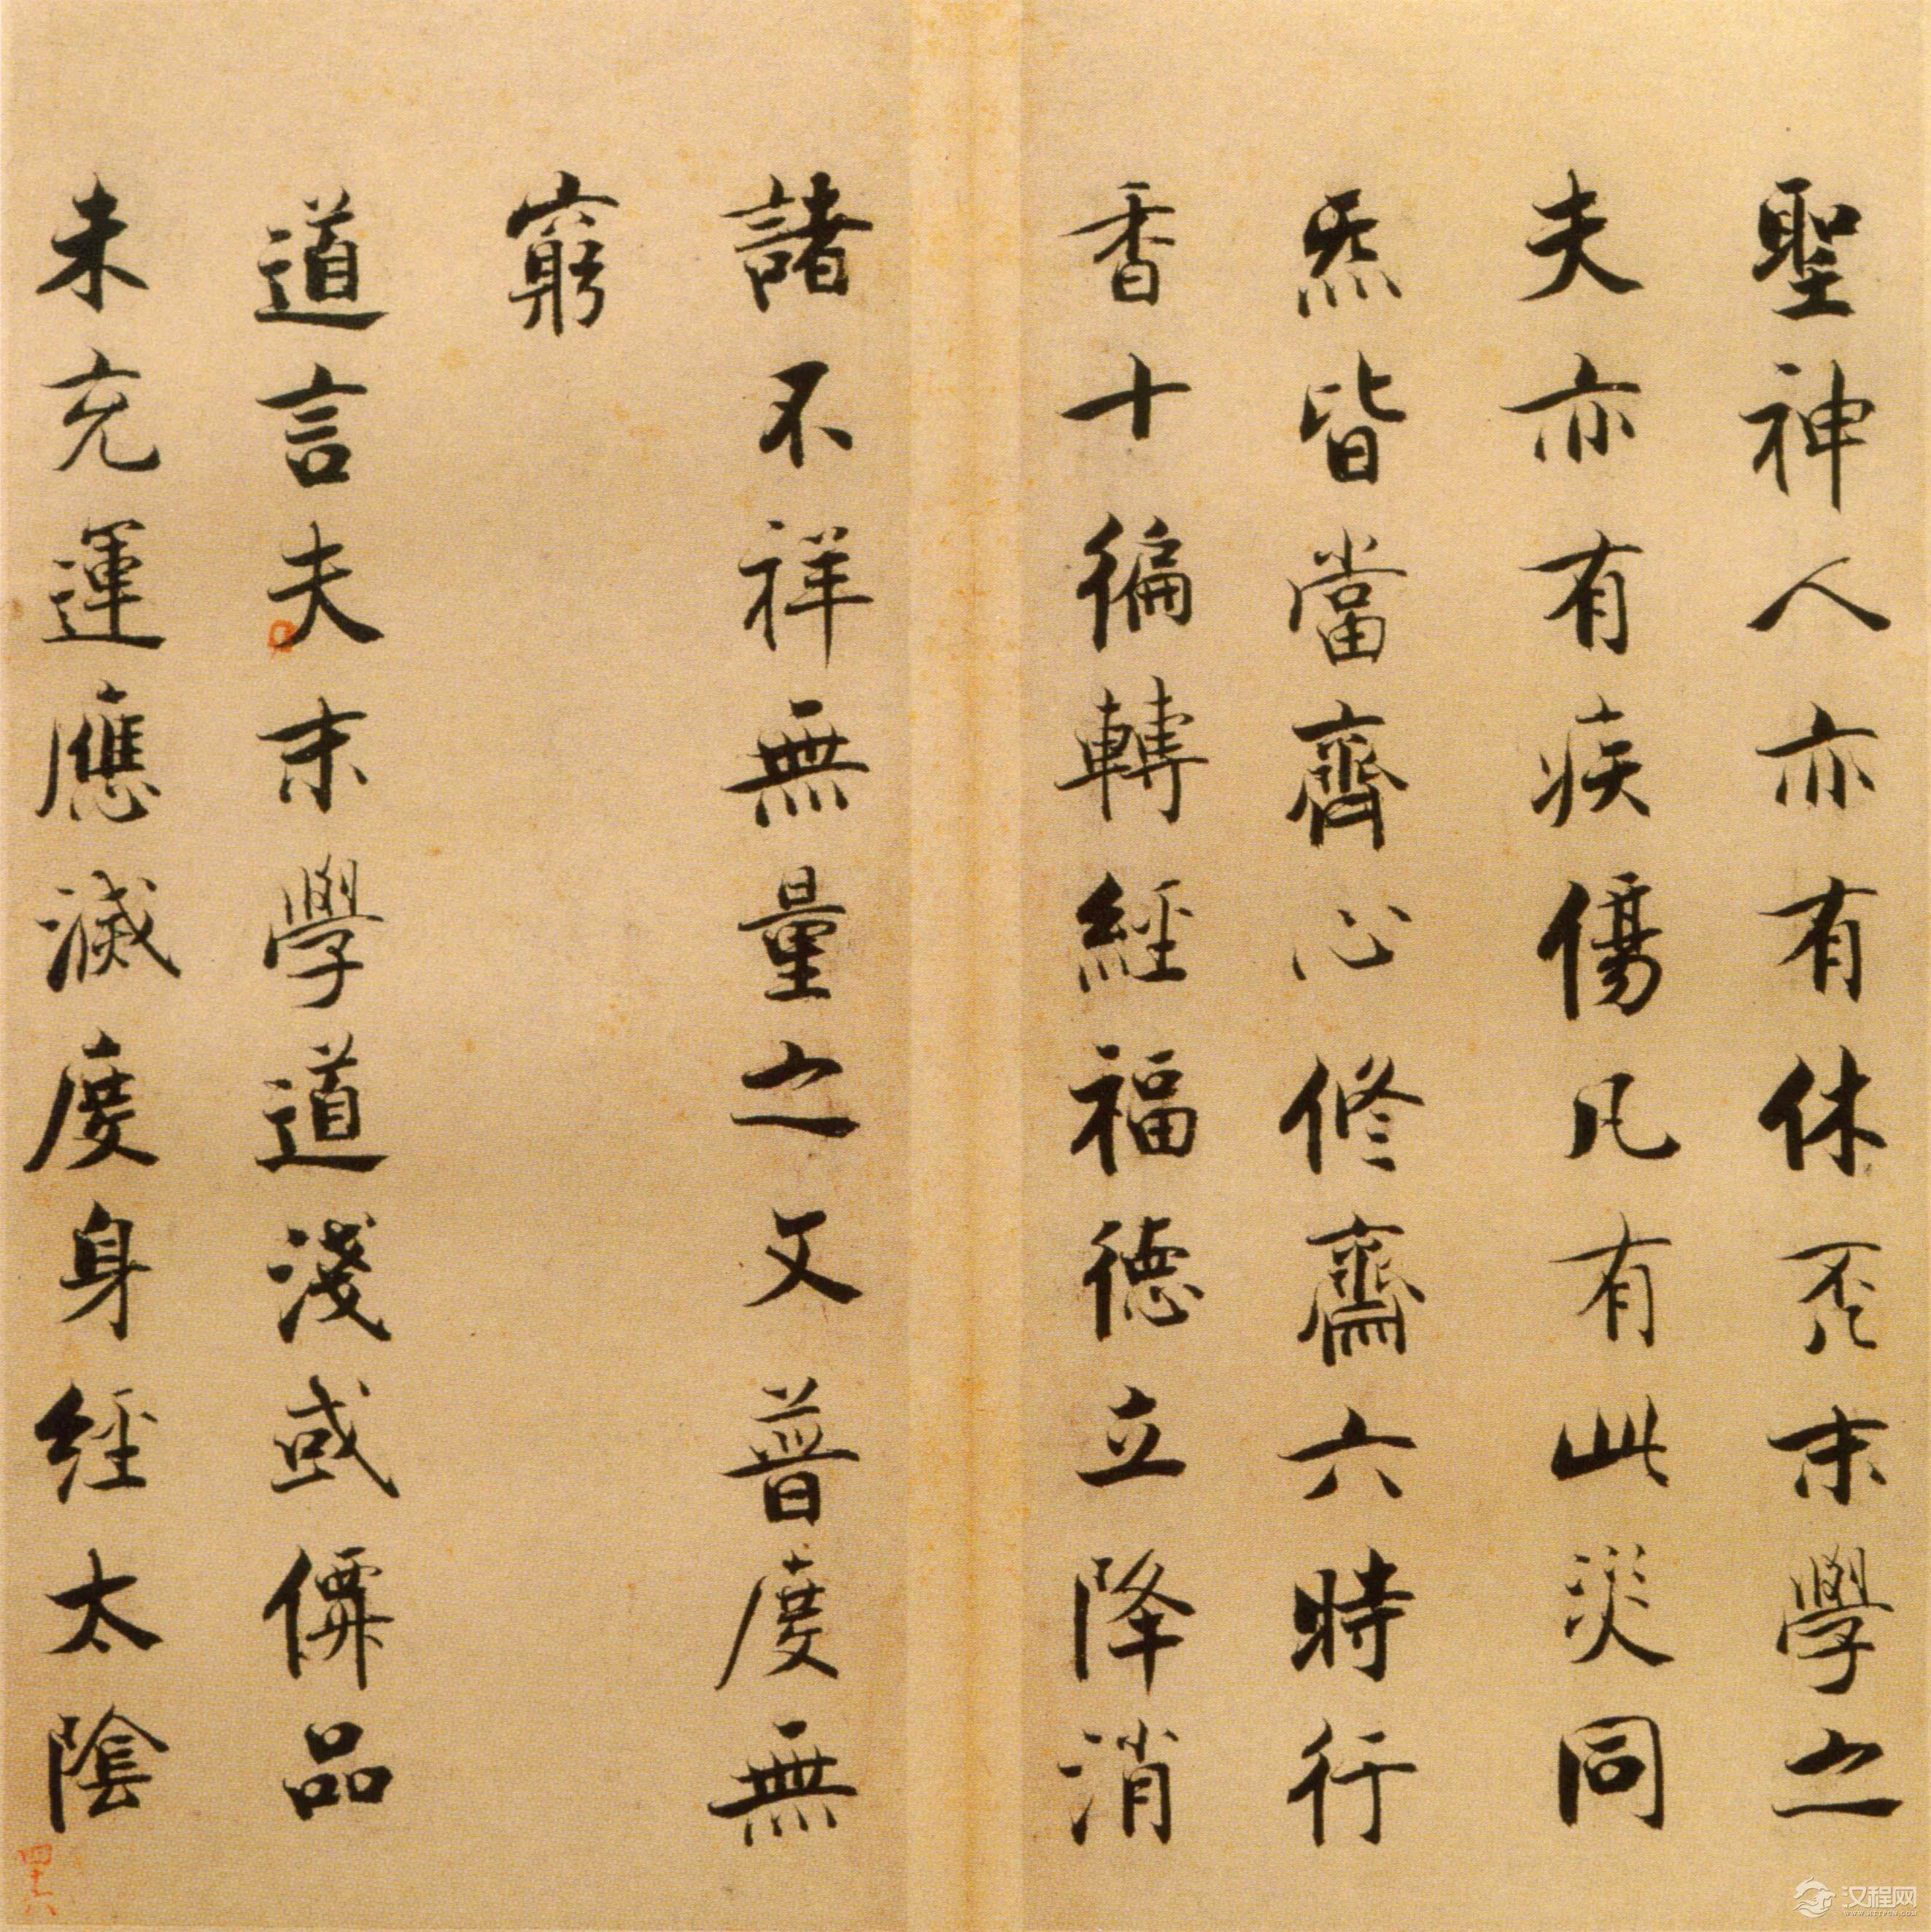 聖神人亦有休否末學之
夫亦有疾傷凡有此災同
炁皆當齊心修齋六時行
香十徧轉經福德立降消
諸不祥無量之文普度無
窮
道言夫末學道淺或僊品
未充運應滅度身經太陰
四十六
汉程网